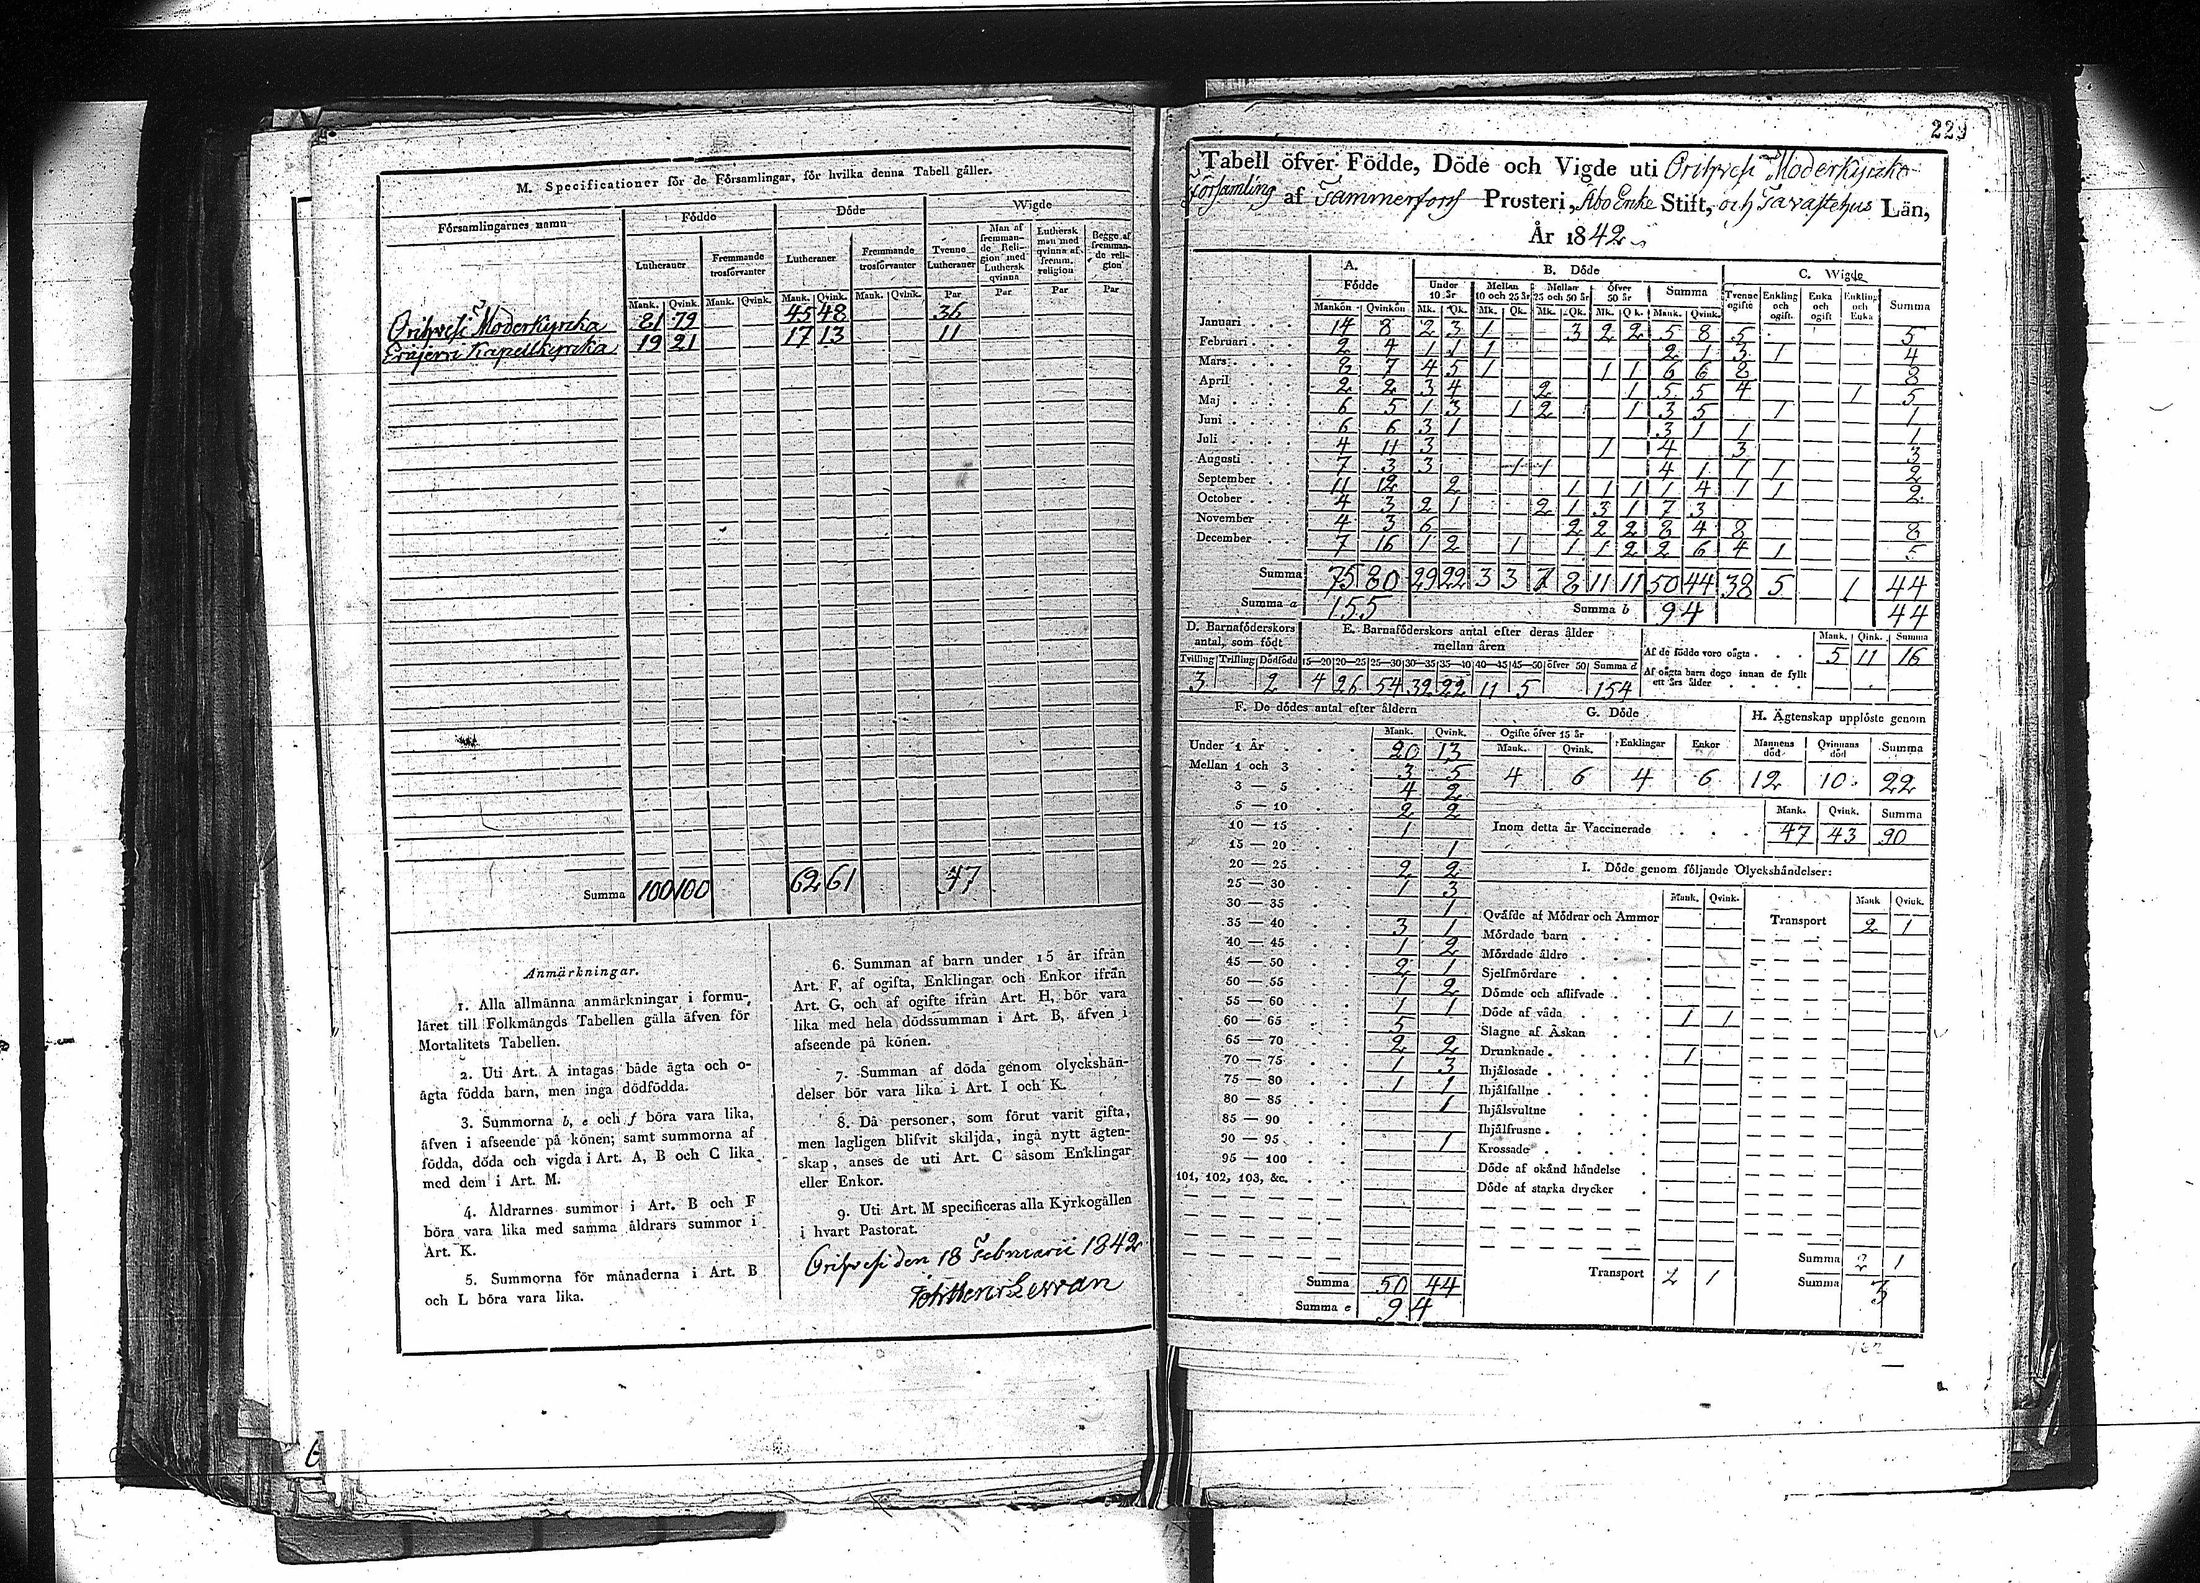 M. Specificationer för de Församlingar, för hvilka denna Tabell gäller.
Församlingarnes namn Födde Döde Wigde
Lutheraner Fremmande trosförvanter Lutheraner Fremmande trosförvanter Tvenne Lutheraner Man af fremmande Religion med Luthersk qvinna Luthersk man med qvinna af fremm. religion Begge af fremmande religion
Mank. Qvink. Mank. Qvink. Mank. Qvink. Mank. Qvink. Par Par Par Par
Orihvesi Moderkyrcka 81 79 45 48 36
Eräjervi Kapellkyrcka 19 21 17 13 11
Summa 100 100 62 61 47
Anmärkningar.
1. Alla allmänna anmärkningar i formu-
läret till Folkmängds Tabellen gälla äfven för
Mortalitets Tabellen.
2. Uti Art. A intagas både ägta och o-
ägta födda barn, men inga dödfödda.
3. Summorna b, e och f böra vara lika,
äfven i afseende på könen; samt summorna af
födda, döda och vigda i Art. A, B och C lika
med dem i Art. M.
4. Åldrarnes summor i Art. B och F
böra vara lika med samma åldrars summor i
Art. K.
5. Summorna för månaderna i Art. B
och L böra vara lika.
6. Summan af barn under 15 år ifrån
Art. F, af ogifta, Enklingar och Enkor ifrån
Art. G, och af ogifte ifrån Art. H, bör vara
lika med hela dödssumman i Art. B, äfven i
afseende på könen.
7. Summan af döda genom olyckshän-
delser bör vara lika i Art. I och K.
8. Då personer, som förut varit gifta,
men lagligen blifvit skiljda, ingå nytt ägten-
skap, anses de uti Art. C såsom Enklingar
eller Enkor.
9. Uti Art. M specificeras alla Kyrkogällen
i hvart Pastorat.
Orihvesi den 18 Februarii 1842
229
Tabell öfver Födde, Döde och Vigde uti Orihvesi Moderkyrcko
församling af Tammerfors Prosteri, Åbo Erke Stift, och Tavastehus Län,
År 1842
A. Födde B. Döde C. Wigde
Under 10 år Mellan 10 och 25 år Mellan 25 och 50 år Öfver 50 år Summa Tvenne ogifte Enkling och ogift Enka och ogift Enkling och Enka Summa
Mankön Qvinkön Mk. Qk. Mk. Qk. Mk. Qk. Mk. Qk. Mank. Qvink.
Januari 14 8 2 3 1 3 2 2 5 8 5 5
Februari 2 4 1 1 1 2 1 3 1 4
Mars 8 7 4 5 1 1 1 6 6 8 8
April 2 2 3 4 2 1 5 5 4 1 5
Maj 6 5 1 3 1 2 1 3 5 1 1
Juni 6 6 3 1 3 1 1 1
Juli 4 11 3 1 4 3 3
Augusti 7 3 3 1 1 4 1 1 1 2
September 11 12 2 1 1 1 1 4 1 1 2
October 4 3 2 1 2 1 3 1 7 3
November 4 3 6 2 2 2 8 4 8 8
December 7 16 1 2 1 1 1 2 2 6 4 1 5
Summa 75 80 29 22 3 3 7 8 11 11 50 44 38 5 1 44
Summa a 155 Summa b 94 44
D. Barnaföderskors antal, som födt
Tvilling Trilling Dödfödd
3 2
E. Barnaföderskors antal efter deras ålder mellan åren
15—20 20—25 25—30 30—35 35—40 40—45 45—50 öfver 50 Summa d
4 26 54 32 22 11 5 154
Mank. Qink. Summa
Af de födde voro oägta 5 11 16
Af oägta barn dogo innan de fyllt ett års ålder
F. De dödes antal efter åldern
Mank. Qvink.
Under 1 År 20 13
Mellan 1 och 3 3 5
3 — 5 4 2
5 — 10 2 2
10 — 15 1
15 — 20 1
20 — 25 2 2
25 — 30 1 3
30 — 35 1
35 — 40 3 1
40 — 45 1 2
45 — 50 2 1
50 — 55 1 2
55 — 60 1 1
60 — 65 5
65 — 70 2 2
70 — 75 1 3
75 — 80 1 1
80 — 85 1
85 — 90
90 — 95 1
95 — 100
101, 102, 103, &c.
Summa 50 44
Summa e 94
G. Döde
Ogifte öfver 15 år Enklingar Enkor
Mank. Qvink.
4 6 4 6
H. Ägtenskap upplöste genom
Mannens död Qvinnans död Summa
12 10 22
Mank. Qvink. Summa
Inom detta år Vaccinerade 47 43 90
I. Döde genom följande Olyckshändelser:
Mank. Qvink. Mank Qvink.
Qväfde af Mödrar och Ammor Transport 2 1
Mördade barn
Mördade äldre
Sjelfmördare
Dömde och aflifvade
Döde af våda 1 1
Slagne af Åskan
Drunknade 1
Ihjälosade
Ihjälfallne
Ihjälsvultne
Ihjälfrusne
Krossade
Döde af okänd händelse
Döde af starka drycker
Transport 2 1
Summa 2 1
Summa 3